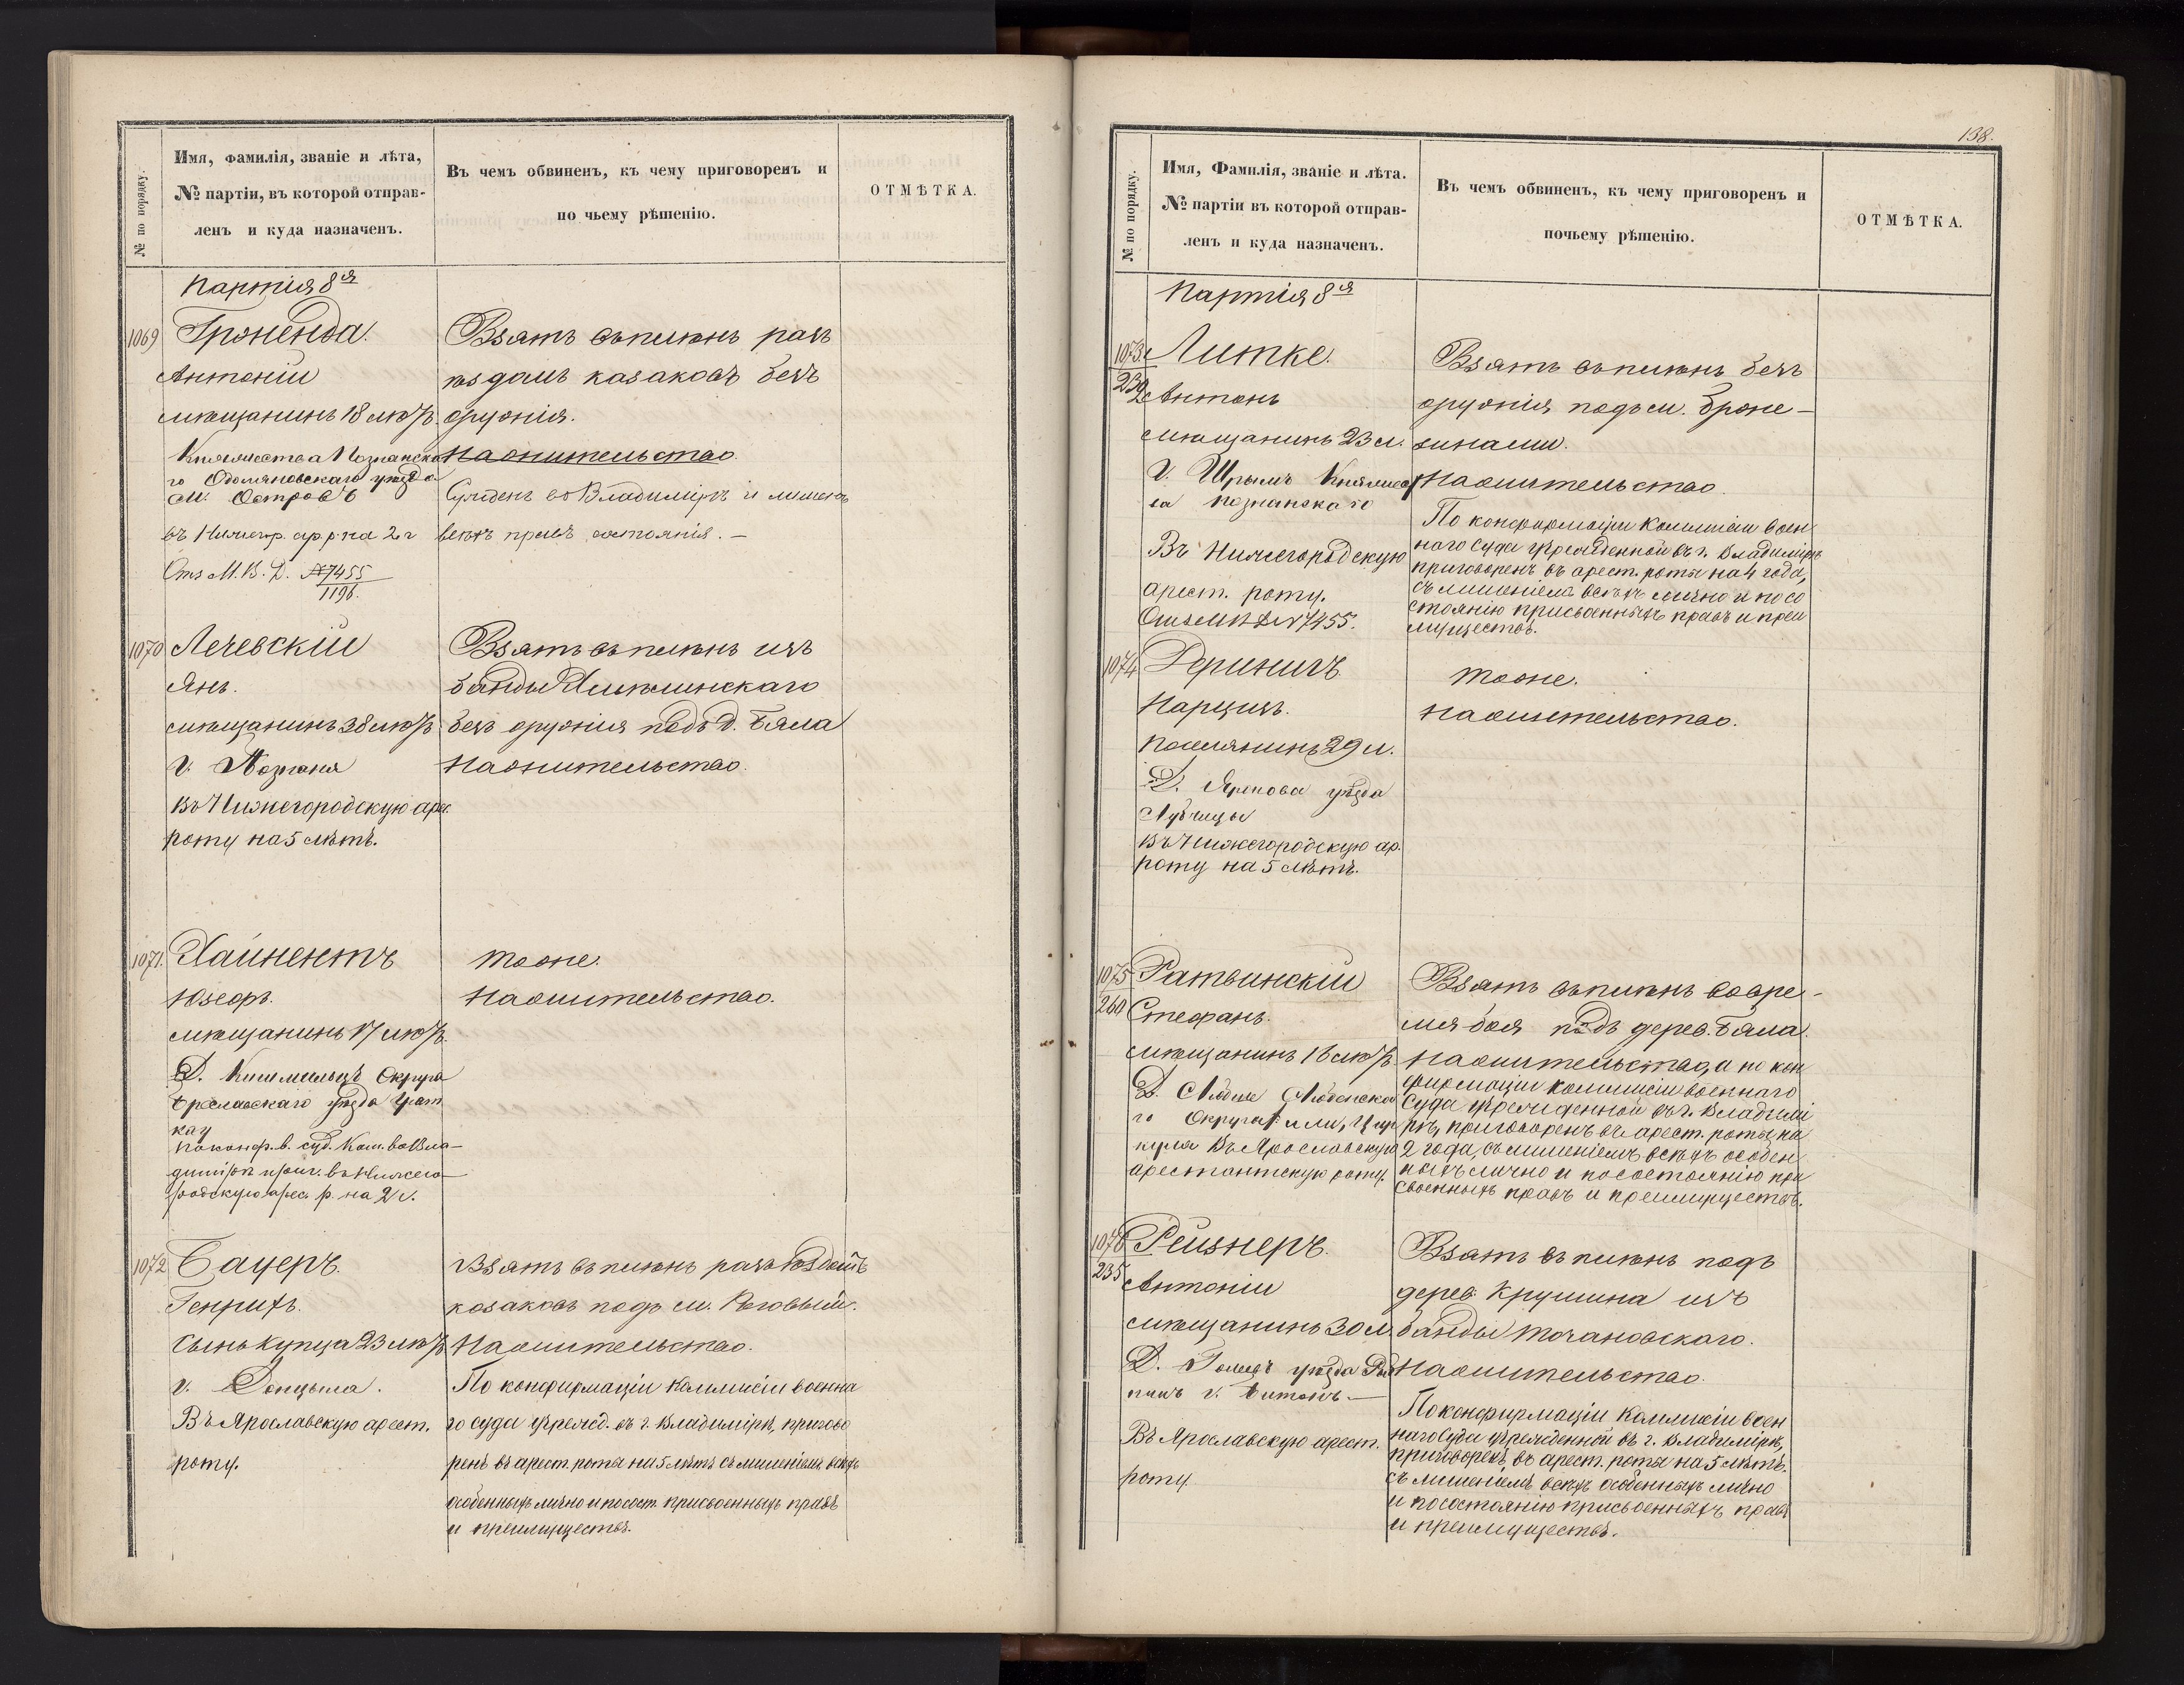 № по порядку.
Имя, фамилія, званіе и лѣта,
№ партіи, въ которой отправ-
ленъ и куда назначенъ.
Въ чемъ обвиненъ, къ чему приговоренъ и
по чьему рѣшенію.
ОТМѢТКА.
Партія 8я
1069
Антоній
мѣщанинъ 18 лѣтъ.
Княжества Познанска
го Одоляновскаго уѣзда
м. Островъ
въ Нижегор. ар. р. на 2 г
Отз М. В. Д. №7455
1196.
Взятъ въ плѣнъ разъ
ѣздомъ казаковъ безъ
оружія.
На жительство.
Сужденъ во Владимірѣ и лишенъ
всѣхъ правъ состоянія. —
1070
Лечевскій
Янъ.
мѣщанинъ 38 лѣтъ
г. Познаня
Въ Нижегородскую арес.
роту на 5 лѣтъ.
Взятъ въ плѣнъ изъ
банды
безъ оружія подъ д. Бяла
На жительство.
1071.
Хайнентъ
Юзефъ.
мѣщанинъ 17 лѣтъ.
Д. Округа
Бреславскаго уѣзда
по конф. в. суд. Ком. во Вла-
димірѣ приг. въ Нижего-
родскую арес. р. на 2 г.
Тоже.
На жительство.
1072
Бауеръ.
Генрихъ.
Сынъ купца 23 лѣтъ
г.
Въ Ярославскую арест.
роту.
Взятъ въ плѣнъ разъѣздомъ
козаковъ подъ м.
На жительство.
По конфирмаціи Коммисіи военна
го суда учрежд. въ г. Владимірѣ, пригово
ренъ въ арест. роты на 5 лѣтъ съ лишеніемъ всѣхъ
особенныхъ лично и по сост. присвоенныхъ правъ
и преимуществъ.
138.
№ по порядку.
Имя, Фамилія, званіе и лѣта.
№ партіи въ которой отправ-
ленъ и куда назначенъ.
Въ чемъ обвиненъ, къ чему приговоренъ и
почьему рѣшенію.
ОТМѢТКА.
Партія 8я
1073.
232
Литке.
Антонъ
мѣщанинъ 23 л.
г. Шримъ Княжест
ва Познанскаго
Въ Нижегородскую
арест. роту.
Отз М В Д № 7455.
Взятъ въ плѣнъ безъ
оружія подъ м. Броне-
зинами.
На жительство.
По конфирмаціи Коммисіи воен
наго Суда учрежденной въ г. Владимірѣ
приговоренъ въ арест. роты на 4 года,
съ лишеніемъ всѣхъ лично и по со
стоянію присвоенныхъ правъ и преи
муществъ.
1074
Нарцизъ.
поселянинъ 29 л.
Д. уѣзда
Въ Нижегородскую ар.
роту на 5 лѣтъ.
Тоже.
На жительство.
1075
260
Ратвинскій
Стефанъ.
мѣщанинъ 18 лѣтъ
Д.
го Округа
Въ Ярославскую
арестантскую роту.
Взятъ въ плѣнъ во вре-
мя боя подъ дерев. Бяла.
На жительство, а по кон
фирмаціи Коммисіи военнаго
Суда учрежденной въ г. Владимі
рѣ, приговоренъ въ арест. роты на
2 года, съ лишеніемъ всѣхъ особен
ныхъ лично и по состоянію при
своенныхъ правъ и преимуществъ.
1076
235
Рейзнеръ.
Антоній
мѣщанинъ 30 л.
Д. уѣзда
Въ Ярославскую арест.
роту.
Взятъ въ плѣнъ подъ
дерев. Крушина изъ
банды Тачановскаго.
На жительство.
По конфирмаціи Коммисіи воен
наго Суда учрежденной въ г. Владимірѣ,
приговоренъ, въ арест. роты на 5 лѣтъ.
съ лишеніемъ всѣхъ особенныхъ лично
и по состоянію присвоенныхъ правъ
и преимуществъ.